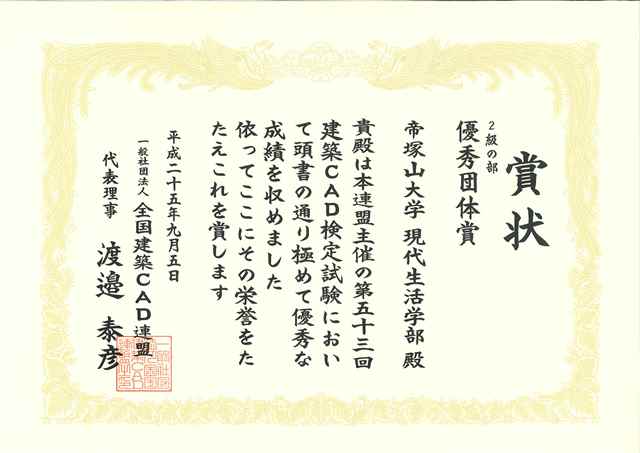 賞状
2級の部
優秀団体賞
帝塚山大学 現代生活学部 殿
貴殿は本連盟主催の第五十三回
建築CAD検定試験におい
て頭書の通り極めて優秀な
成績を収めました
依ってここにその栄誉をた
たえこれを賞します
平成二十五年九月五日
一般社団法人 全国建築CAD連盟
代表理事 渡邉 泰彦